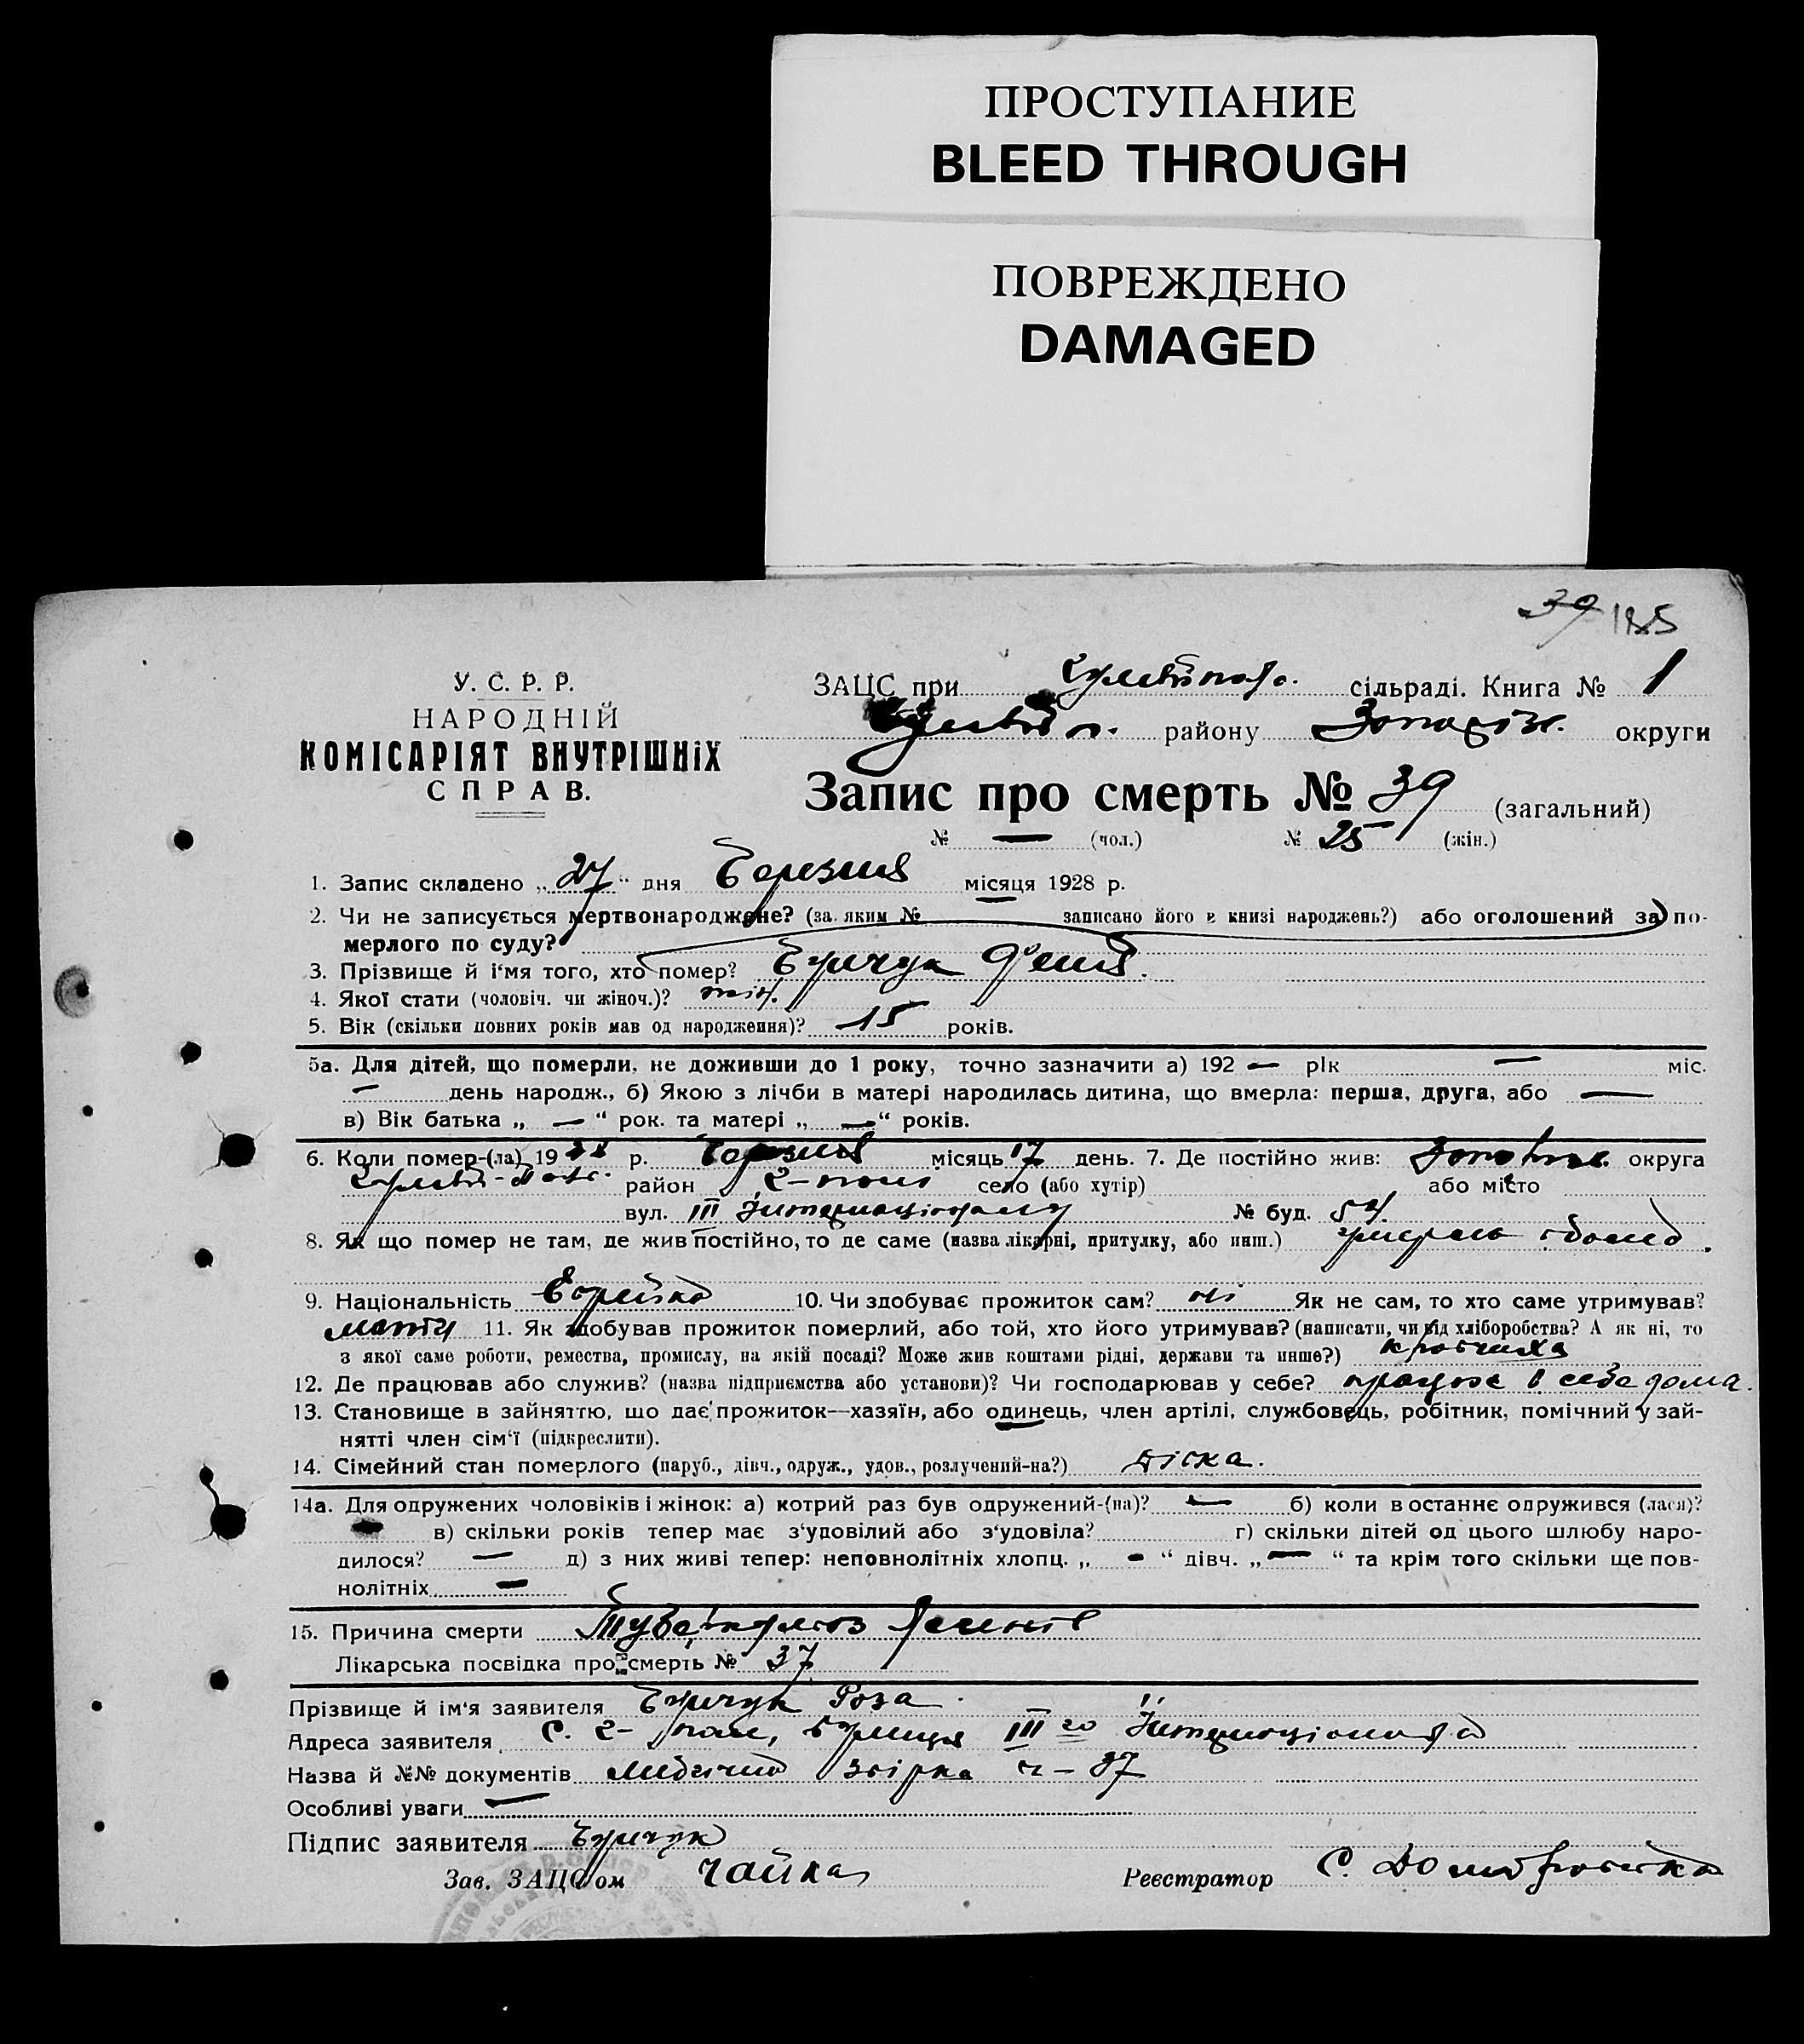 ПРОСТУПАНИЕ
BLEED THROUGH
ПОВРЕЖДЕНО
DAMAGED
39 185
У. С. Р. Р.
НАРОДНІЙ
КОМІСАРІЯТ ВНУТРІШНіХ
СПРАВ.
ЗАЦС при Гуляйпол. сільраді. Книга № 1
Гуляйп. району Запоріж. округи
Запис про смерть № 39 (загальний)
№ — (чол.) № 25 (жін.)
1. Запис складено „27" дня Березня місяця 1928 р.
2. Чи не записується мертвонароджене? (за яким № записано його в книзі народжень?) або оголошений за по-
мерлого по суду?
3. Прізвище й і'мя того, хто помер? Бурчук Феня.
4. Якої стати (чоловіч. чи жіноч.)? жін.
5. Вік (скільки повних років мав од народження)? 15 років.
5а. Для дітей, що померли, не доживши до 1 року, точно зазначити а) 192 — рік — міс.
— день народж., б) Якою з лічби в матері народилась дитина, що вмерла: перша, друга, або —
в) Вік батька „ — " рок. та матері „ — " років.
6. Коли помер-(ла) 1928 р. Березня місяць 17 день. 7. Де постійно жив: округа
район Г-поле село (або хутір) або місто
вул. III Інтернаціоналу № буд. 54.
8. Як що помер не там, де жив постійно, то де саме (назва лікарні, притулку, або инш.) умерла вдома.
9. Національність Єврейка 10. Чи здобуває прожиток сам? ні Як не сам, то хто саме утримував?
мати 11. Як здобував прожиток померлий, або той, хто його утримував? (написати, чи від хліборобства? А як ні, то
з якої саме роботи, ремества, промислу, на якій посаді? Може жив коштами рідні, держави та инше?) кравчиха
12. Де працював або служив? (назва підприємства або установи)? Чи господарював у себе? працює в себе дома.
13. Становище в зайняттю, що дає прожиток—хазяїн, або одинець, член артілі, службовець, робітник, помічний у зай-
нятті член сім'ї (підкреслити).
14. Сімейний стан померлого (паруб., дівч., одруж., удов., розлучений-на?) дівка.
14а. Для одружених чоловіків і жінок: а) котрий раз був одружений-(на)? — б) коли востаннє одружився (лася)?
— в) скільки років тепер має з'удовілий або з'удовіла? г) скільки дітей од цього шлюбу наро-
дилося? — д) з них живі тепер: неповнолітніх хлопц. „ — " дівч. „ — " та крім того скільки ще пов-
нолітніх —
15. Причина смерти Туберкульоз легенів
Лікарська посвідка про смерть № 37
Прізвище й ім'я заявителя Бурчук Роза
Адреса заявителя с. Г-поле, вулиця III го Інтернаціонала
Назва й №№ документів ч – 37
Особливі уваги —
Підпис заявителя Бурчук
Зав. ЗАЦС'ом Чайка Реєстратор С.